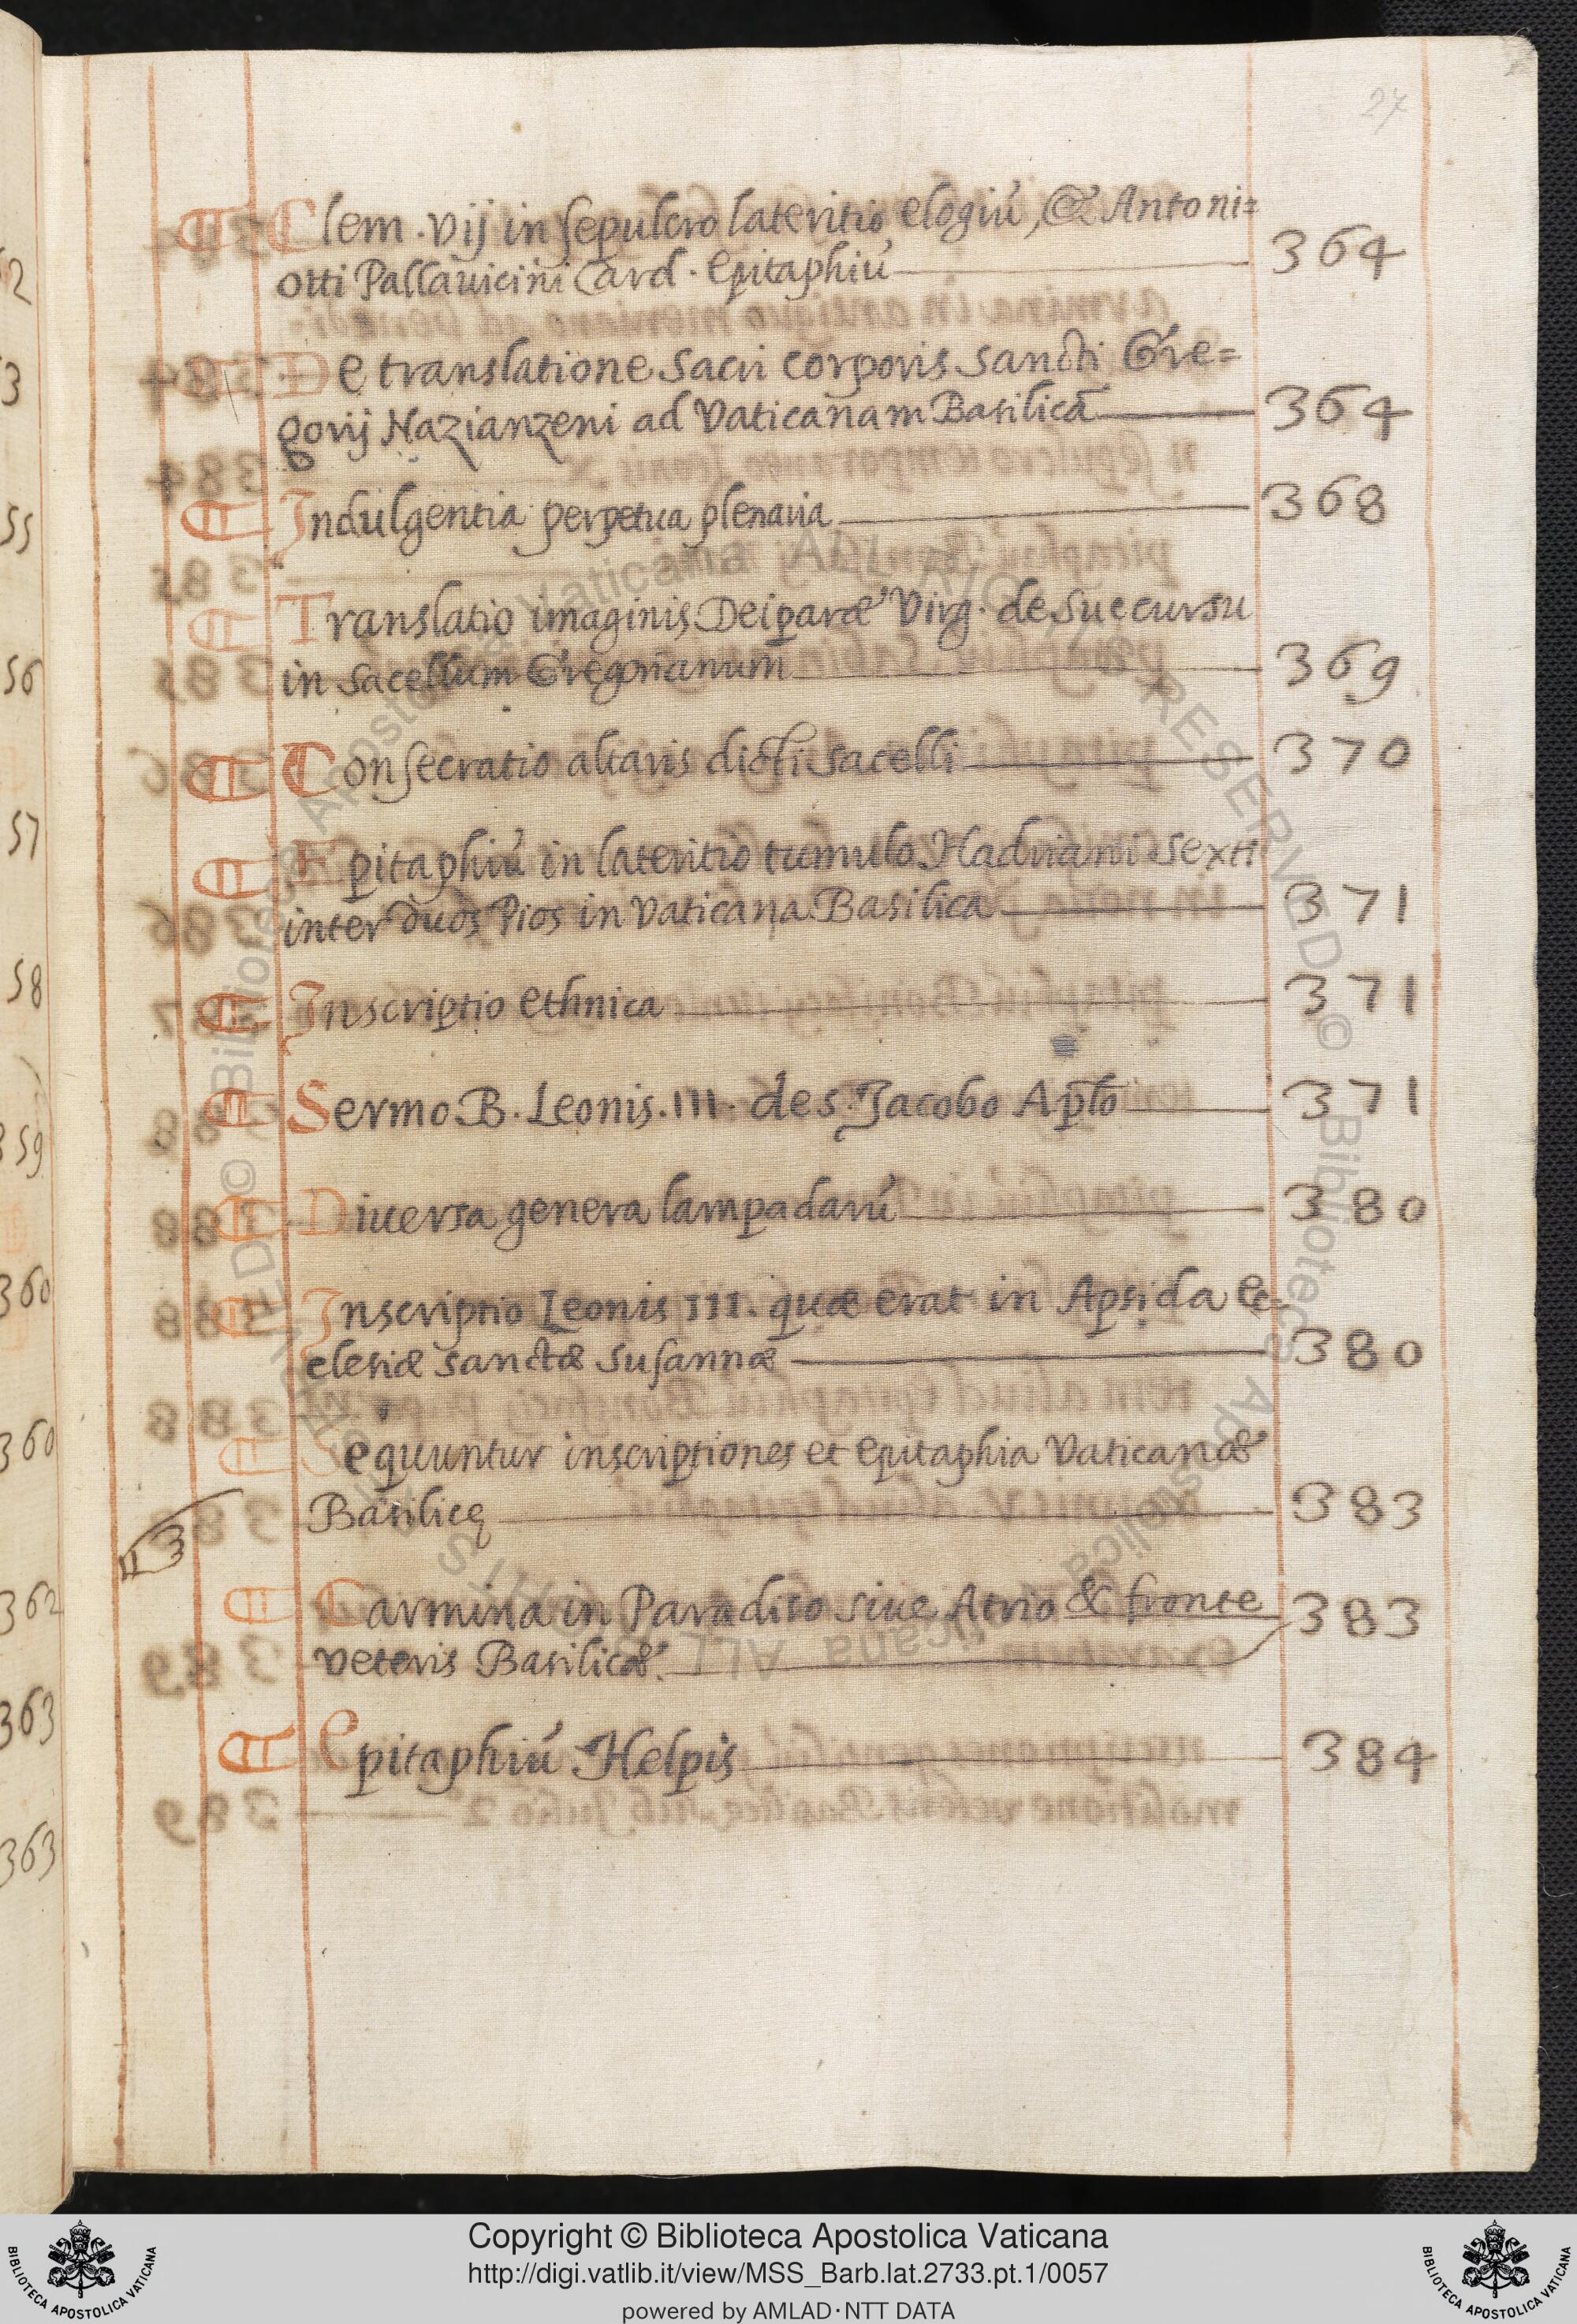 27
¶ Clem. vij in sepulcro lateritio elogiú, & Antoni=
otti Pallauicini Card. epitaphiú 364
¶ De translatione sacri corporis sancti Gre=
gorij Nazianzeni ad Vaticanam Basilicã 364
¶ Indulgentia perpetua plenaria 368
¶ Translatio imaginis Deiparæ Virg. de succursu
in sacellum Gregorianum 369
¶ Consecratio altaris dicti sacelli 370
¶ Epitaphiú in lateritio tumulo Hadriani sexti
inter duos Pios in Vaticana Basilica 371
¶ Inscriptio ethnica 371
¶ Sermo B. Leonis. III. de s. Jacobo Apło 371
¶ Diuersa genera lampadarú 380
¶ Inscriptio Leonis III. quæ erat in Apsida ec-
clesiæ sanctæ Susannæ 380
¶ Sequuntur inscriptiones et epitaphia Vaticanæ
Basilicę 383
¶ Carmina in Paradiso siue Atrio & fronte 383
veteris Basilicæ.
¶ Epitaphiú Helpis 384
Copyright © Biblioteca Apostolica Vaticana
http://digi.vatlib.it/view/MSS_Barb.lat.2733.pt.1/0057
powered by AMLAD·NTT DATA
BIBLIOTECA APOSTOLICA VATICANA
BIBLIOTECA APOSTOLICA VATICANA